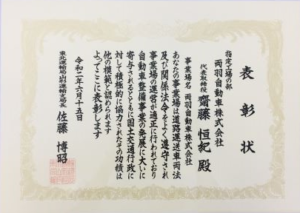 表彰状
指定工場の部
両羽自動車株式会社
代表取締役 齋藤 恒紀 殿
事業場名 両羽自動車株式会社
あなたの事業場は道路運送車両法
及び関係法令をよく遵守され
事業場の運営が適正に行われており
自動車整備事業の発展に大いに
寄与されるとともに国土交通行政に
対して積極的に協力されたその功績は
他の模範と認められます
よってここに表彰します
令和二年六月十五日
東北運輸局山形運輸支局長 佐藤 博昭